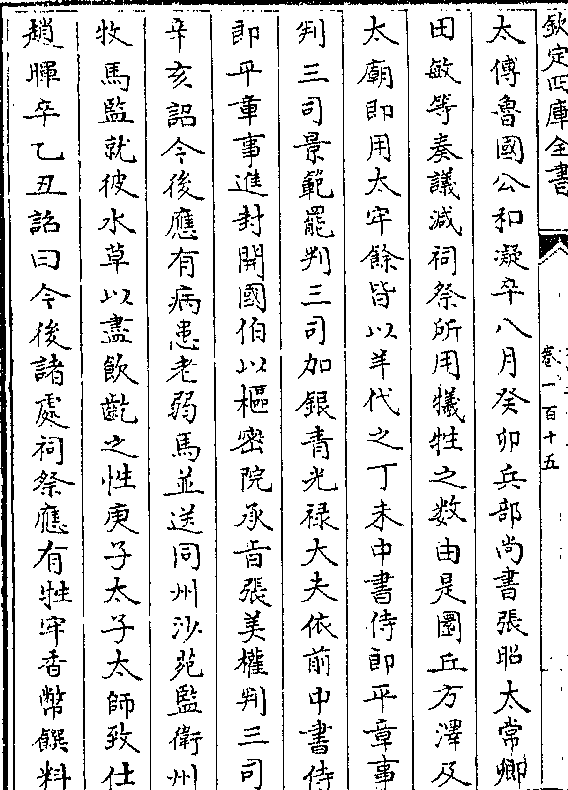 欽定四庫全書
卷一百十五
太傅魯國公和凝卒八月癸卯兵部尚書張昭太常卿
田敏等奏議減祠祭所用犧牲之数由是圜丘方澤及
太廟即用太牢餘皆以羊代之丁未中書侍郎平章事
判三司景範罷判三司加銀青光禄大夫依前中書侍
郎平章事進封開國伯以樞密院承旨張美權判三司
辛亥詔今後應有病患老弱馬並送同州沙苑監衛州
牧馬監就彼水草以盡飲齕之性庚子太子太師致仕
趙暉卒乙丑詔曰今後諸處祠祭應有牲牢香幣饌料